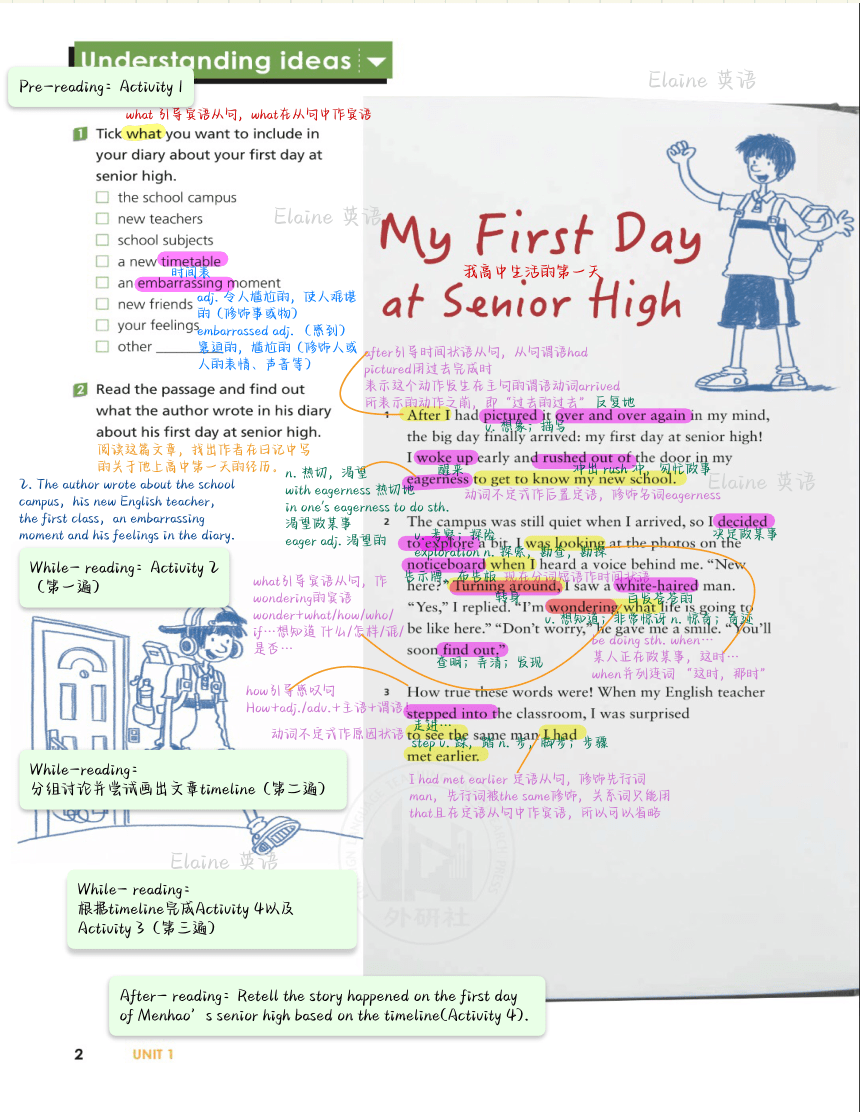 Understanding ideas
Pre-reading: Activity 1
Elaine 英语
what 引导宾语从句, what在从句中作宾语
1 Tick what you want to include in
your diary about your first day at
senior high.
the school campus
new teachers
school subjects
a new timetable
时间表
an embarrassing moment
new friends
adj. 令人尴尬的, 使人难堪
的 (修饰事或物)
your feelings
embarrassed adj. (感到)
窘迫的, 尴尬的 (修饰人或
人的表情、声音等)
other
Elaine 英语
2 Read the passage and find out
what the author wrote in his diary
about his first day at senior high.
阅读这篇文章, 找出作者在日记中写
的关于他上高中第一天的经历。
2. The author wrote about the school
campus, his new English teacher,
the first class, an embarrassing
moment and his feelings in the diary.
While-reading: Activity 2
(第一遍)
While-reading:
分组讨论并尝试画出文章timeline (第二遍)
Elaine 英语
While-reading:
根据timeline完成Activity 4以及
Activity 3 (第三遍)
My First Day
我高中生活的第一天
at Senior High
after引导时间状语从句, 从句谓语had
pictured用过去完成时
表示这个动作发生在主句的谓语动词arrived
所表示的动作之前, 即“过去的过去”
反复地
1 After I had pictured it over and over again in my mind,
v. 想象; 描写
the big day finally arrived: my first day at senior high!
I woke up early and rushed out of the door in my
醒来
冲出 rush 冲, 匆忙做事
eagerness to get to know my new school.
Elaine 英语
n. 热切, 渴望
with eagerness 热切地
in one's eagerness to do sth.
渴望做某事
eager adj. 渴望的
动词不定式作后置定语, 修饰名词eagerness
2 The campus was still quiet when I arrived, so I decided
决定做某事
to explore a bit. I was looking at the photos on the
v. 考察; 探险
exploration n. 探索, 勘查, 勘探
noticeboard when I heard a voice behind me. “New
告示牌, 布告板
现在分词短语作时间状语
here?” Turning around, I saw a white-haired man.
转身
白发苍苍的
“Yes,” I replied. “I’m wondering what life is going to
v. 想知道; 非常惊讶 n. 惊奇; 奇迹
be like here.” “Don’t worry,” he gave me a smile. “You’ll
soon find out.”
查明; 弄清; 发现
be doing sth. when…
某人正在做某事, 这时…
when并列连词 “这时, 那时”
what引导宾语从句, 作
wondering的宾语
wonder+what/how/who/
if…想知道 什么/怎样/谁/
是否…
how引导感叹句
How+adj./adv.+主语+谓语!
3 How true these words were! When my English teacher
stepped into the classroom, I was surprised
走进…
动词不定式作原因状语
to see the same man I had
step v. 踩, 踏 n. 步, 脚步; 步骤
met earlier.
I had met earlier 定语从句, 修饰先行词
man, 先行词被the same修饰, 关系词只能用
that且在定语从句中作宾语, 所以可以省略
外研社
After-reading: Retell the story happened on the first day
of Menhao’s senior high based on the timeline(Activity 4).
2 UNIT 1